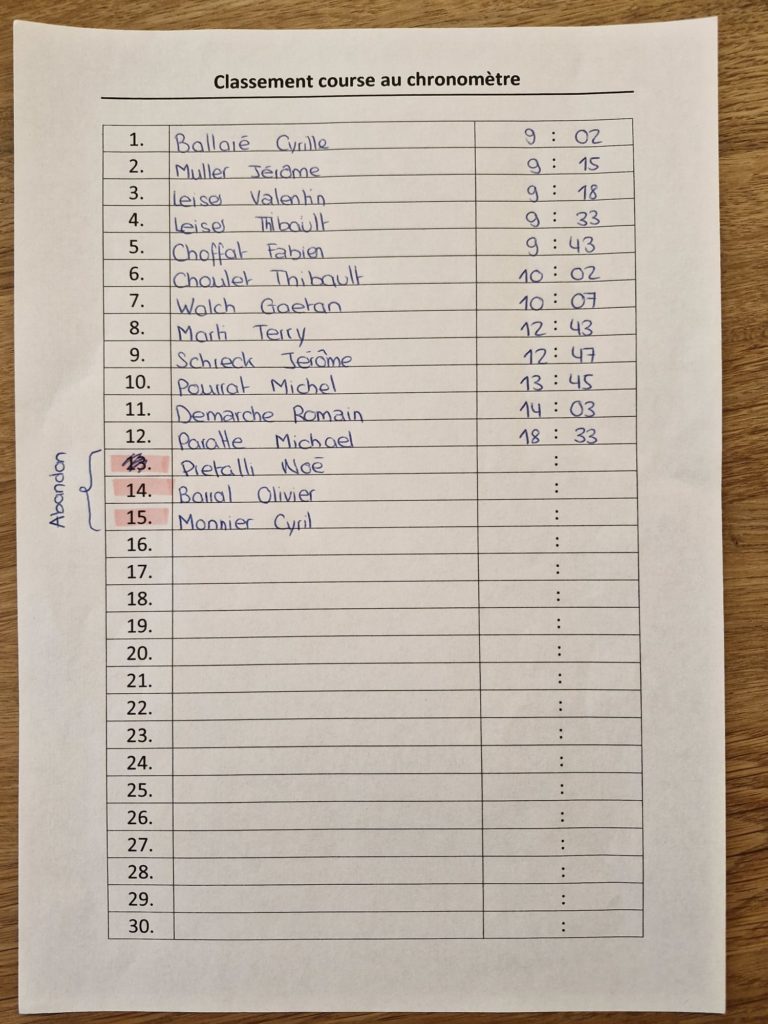 Classement course au chronomètre
1. Ballaré Cyrille 9 : 02
2. Muller Jérôme 9 : 15
3. Leiser Valentin 9 : 18
4. Leiser Thibault 9 : 33
5. Choffat Fabien 9 : 43
6. Choulet Thibault 10 : 02
7. Walch Gaetan 10 : 07
8. Marti Terry 12 : 43
9. Schreck Jérôme 12 : 47
10. Pourrat Michel 13 : 45
11. Demarche Romain 14 : 03
12. Paratte Michael 18 : 33
Abandon
13. Pietalli Noé :
14. Barral Olivier :
15. Monnier Cyril :
16. :
17. :
18. :
19. :
20. :
21. :
22. :
23. :
24. :
25. :
26. :
27. :
28. :
29. :
30. :